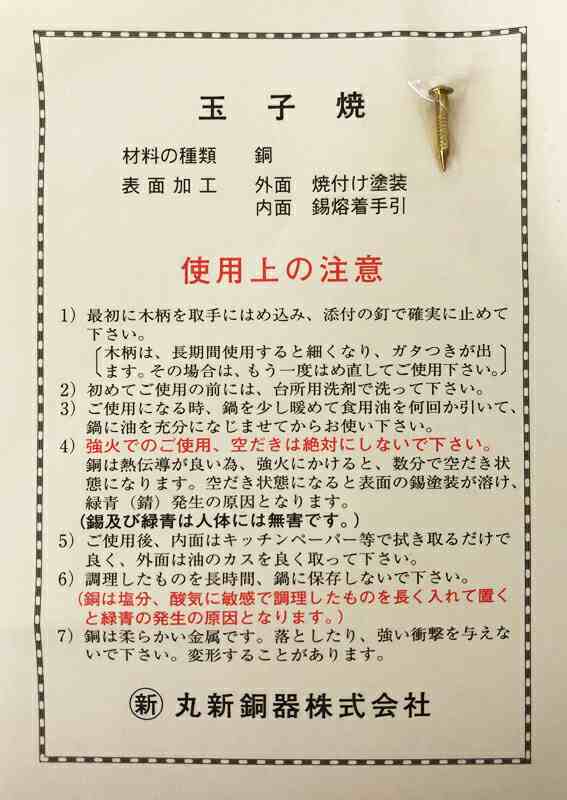 玉子焼
材料の種類 銅
表面加工 外面 焼付け塗装
内面 錫熔着手引
使用上の注意
1) 最初に木柄を取手にはめ込み、添付の釘で確実に止めて
下さい。
〔木柄は、長期間使用すると細くなり、ガタつきが出
ます。その場合は、もう一度はめ直してご使用下さい。〕
2) 初めてご使用の前には、台所用洗剤で洗って下さい。
3) ご使用になる時、鍋を少し暖めて食用油を何回か引いて、
鍋に油を充分になじませてからお使い下さい。
4) 強火でのご使用、空だきは絶対にしないで下さい。
銅は熱伝導が良い為、強火にかけると、数分で空だき状
態になります。空だき状態になると表面の錫塗装が溶け、
緑青（錆）発生の原因となります。
(錫及び緑青は人体には無害です。)
5) ご使用後、内面はキッチンペーパー等で拭き取るだけで
良く、外面は油のカスを良く取って下さい。
6) 調理したものを長時間、鍋に保存しないで下さい。
(銅は塩分、酸気に敏感で調理したものを長く入れて置く
と緑青の発生の原因となります。)
7) 銅は柔らかい金属です。落としたり、強い衝撃を与えな
いで下さい。変形することがあります。
新 丸新銅器株式会社